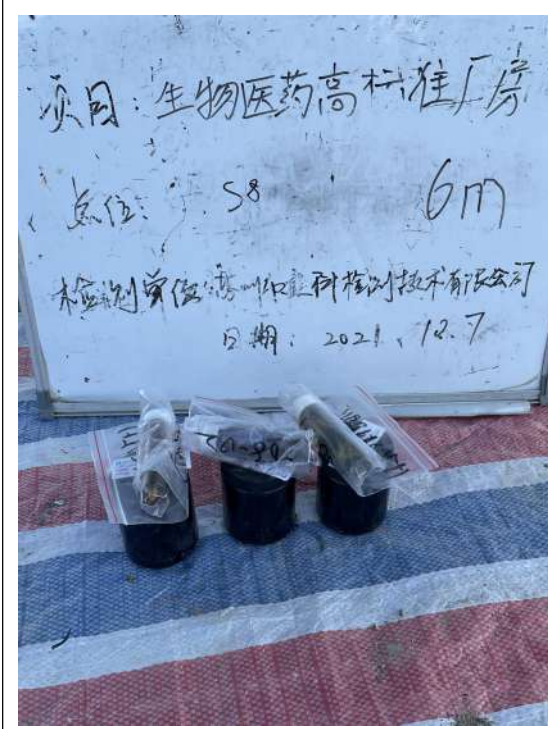 项目：生物医药高标准厂房
点位： S8 6m
检测单位：苏州 科检测技术有限公司
日期：2021、12.7